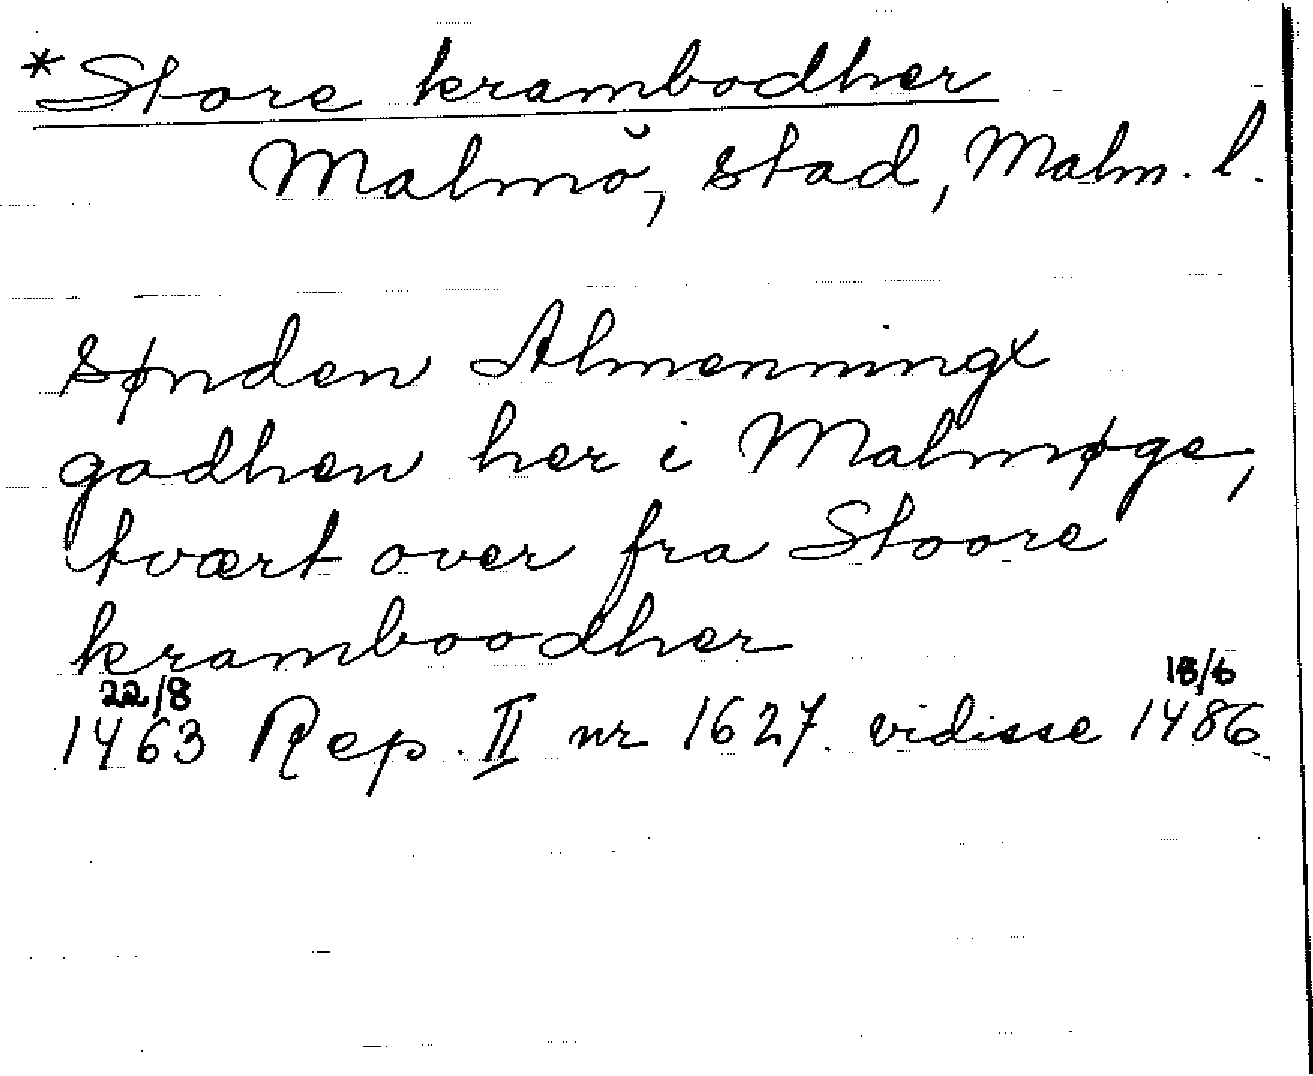 *Store krambodher
Malmö, stad, Malm. l.
sønden Almenningx
gadhen her i Malmøge,
tvært over fra Stoore
kramboodher
22/8 18/6
1463 Rep. II nr 1627 vidisse 1486